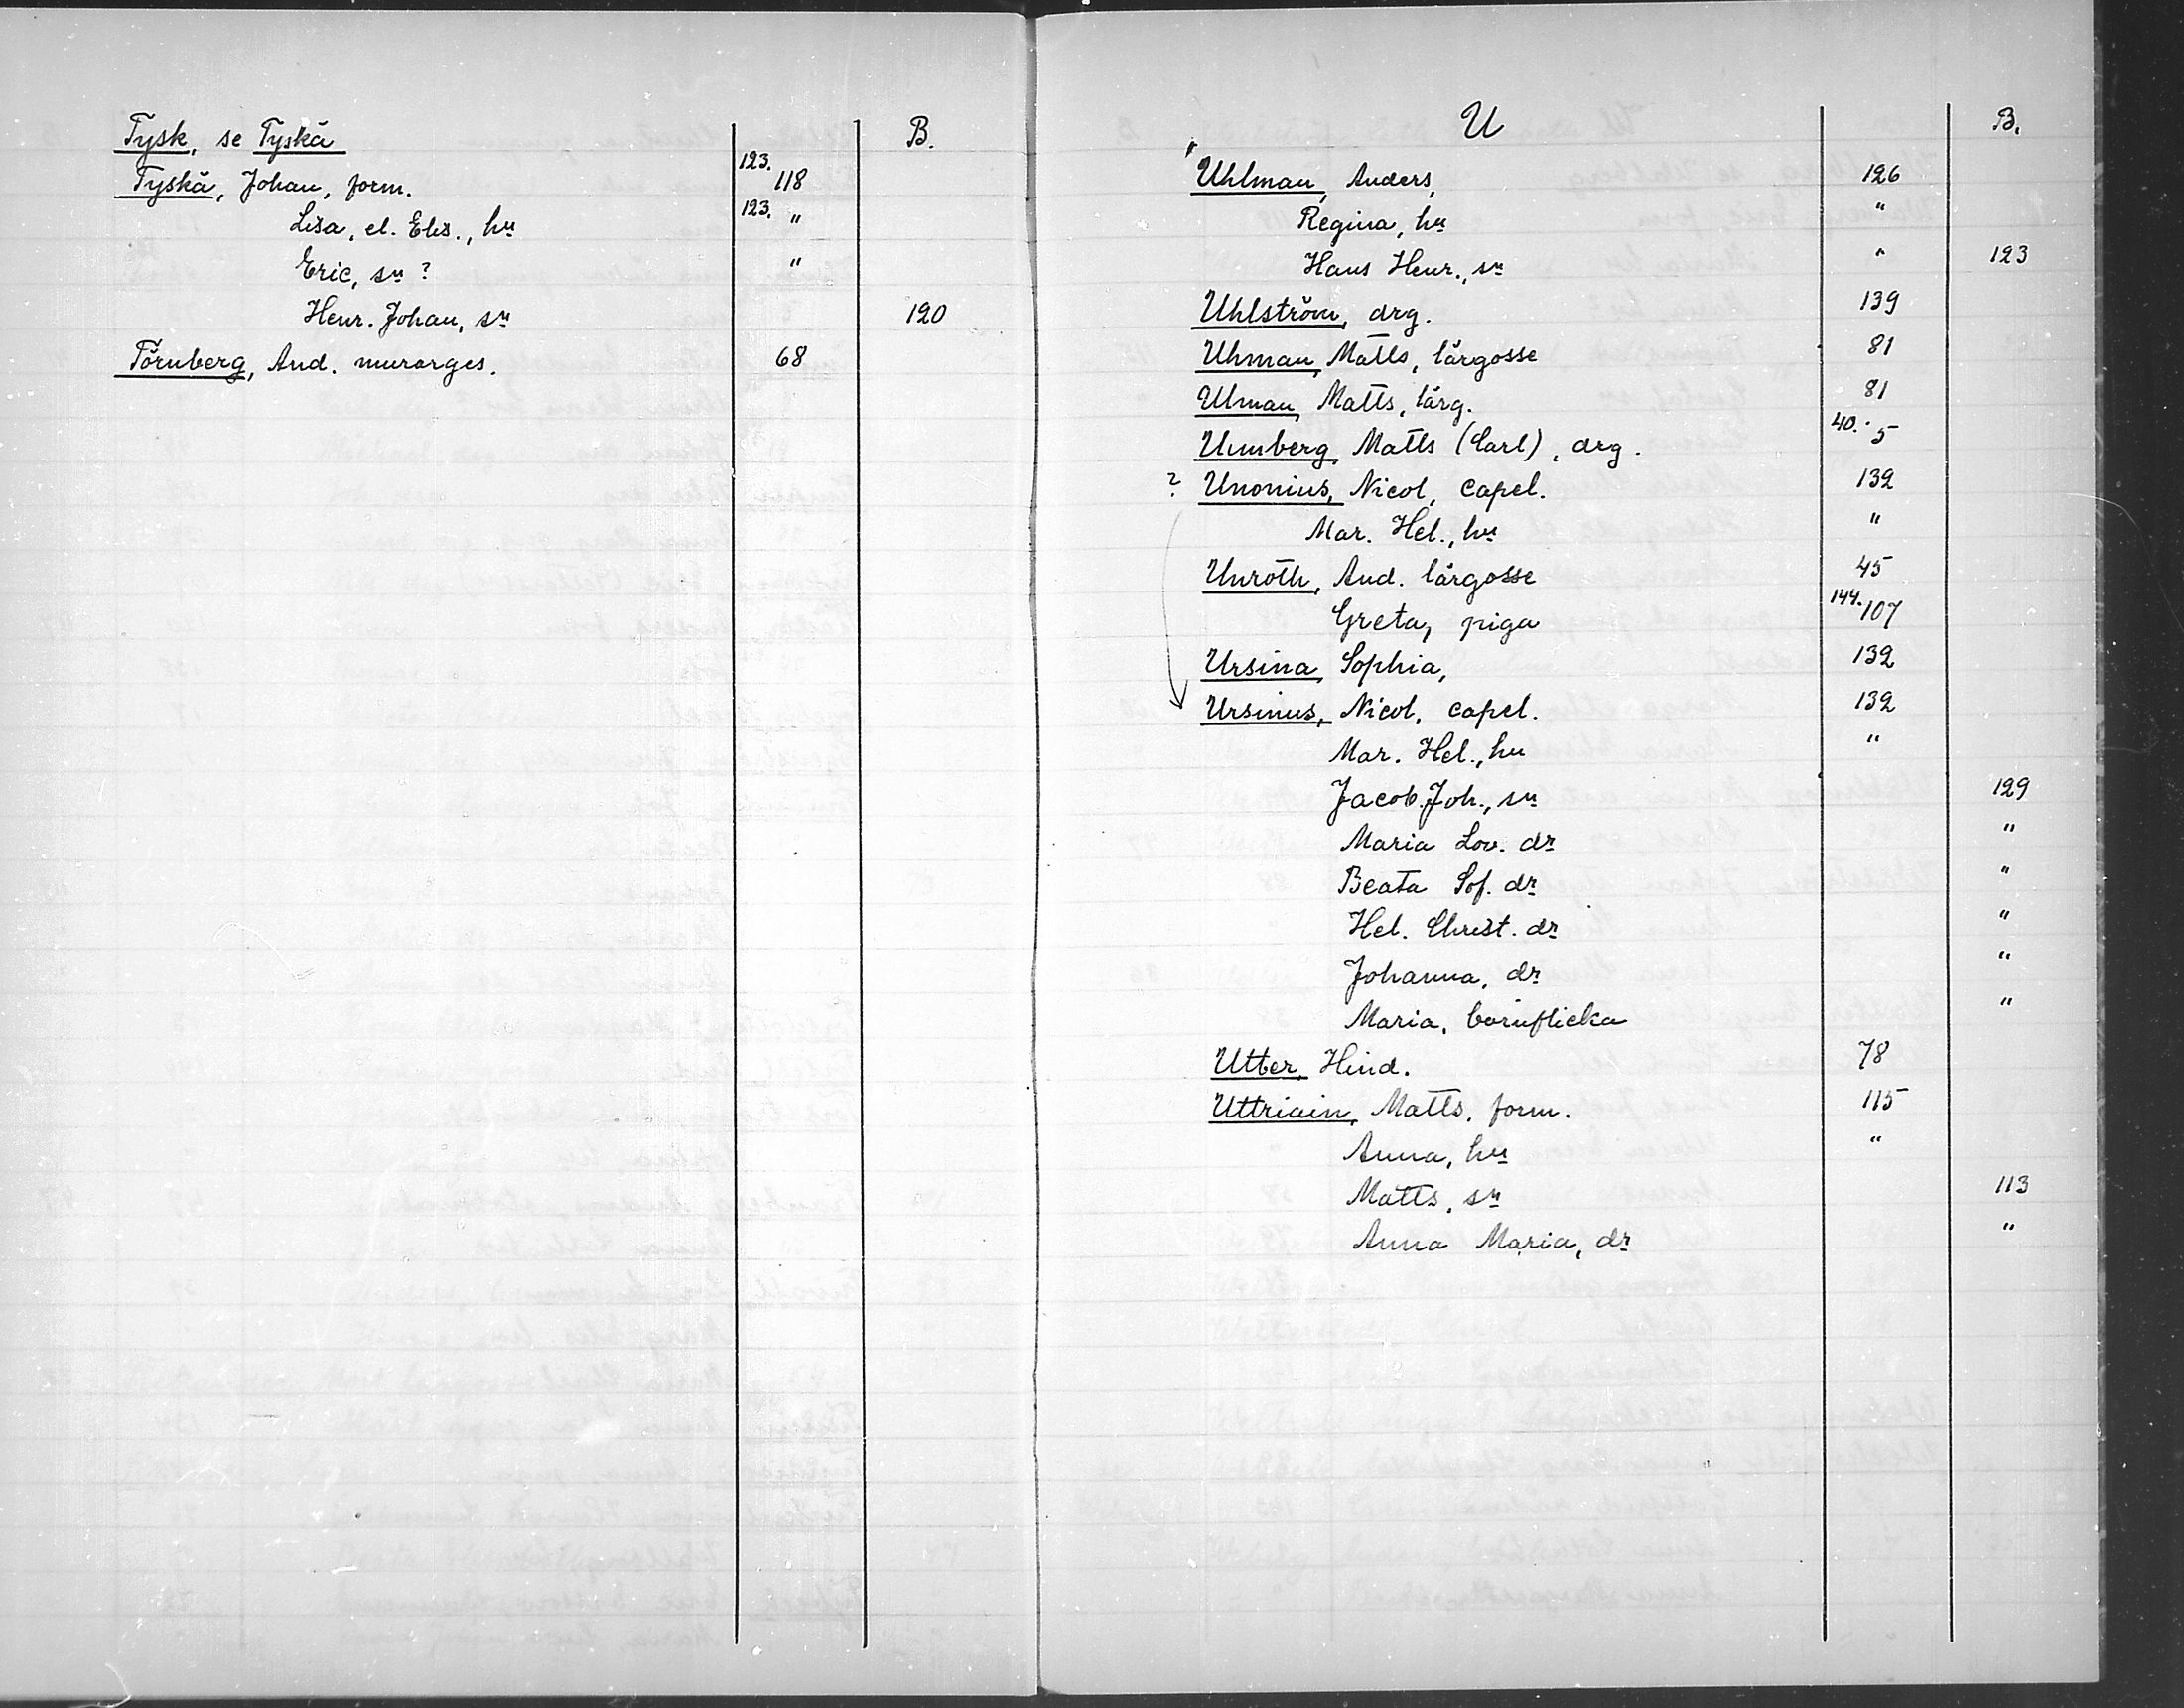 Tysk, se Tyskä B.
Tyskä, Johan, form. 123. 118
Lisa, el. Elis., hu 123. "
Eric, sn ? "
Henr. Johan, sn 120
Törnberg, And. murarges. 68
U B.
Uhlman, Anders, 126
Regina, hu "
Hans Henr., sn " 123
Uhlström, drg. 139
Uhman, Matts, lärgosse 81
Ulman, Matts, lärg. 81
Umberg, Matts (Carl), drg. 40. 5
? Unonius, Nicol, Capel. 132
Mar. Hel., hu "
Unroth, And. lärgosse 45
Greta, piga 144. 107
Ursina, Sophia, 132
Ursinus, Nicol, Capel. 132
Mar. Hel., hu "
Jacob Joh., sn 129
Maria Lov. dr "
Beata Sof. dr "
Hel. Christ. dr "
Johanna, dr "
Maria, barnflicka "
Utter, Hind. 78
Uttriain, Matts, form. 115
Anna, hu "
Matts, sn 113
Anna Maria, dr "